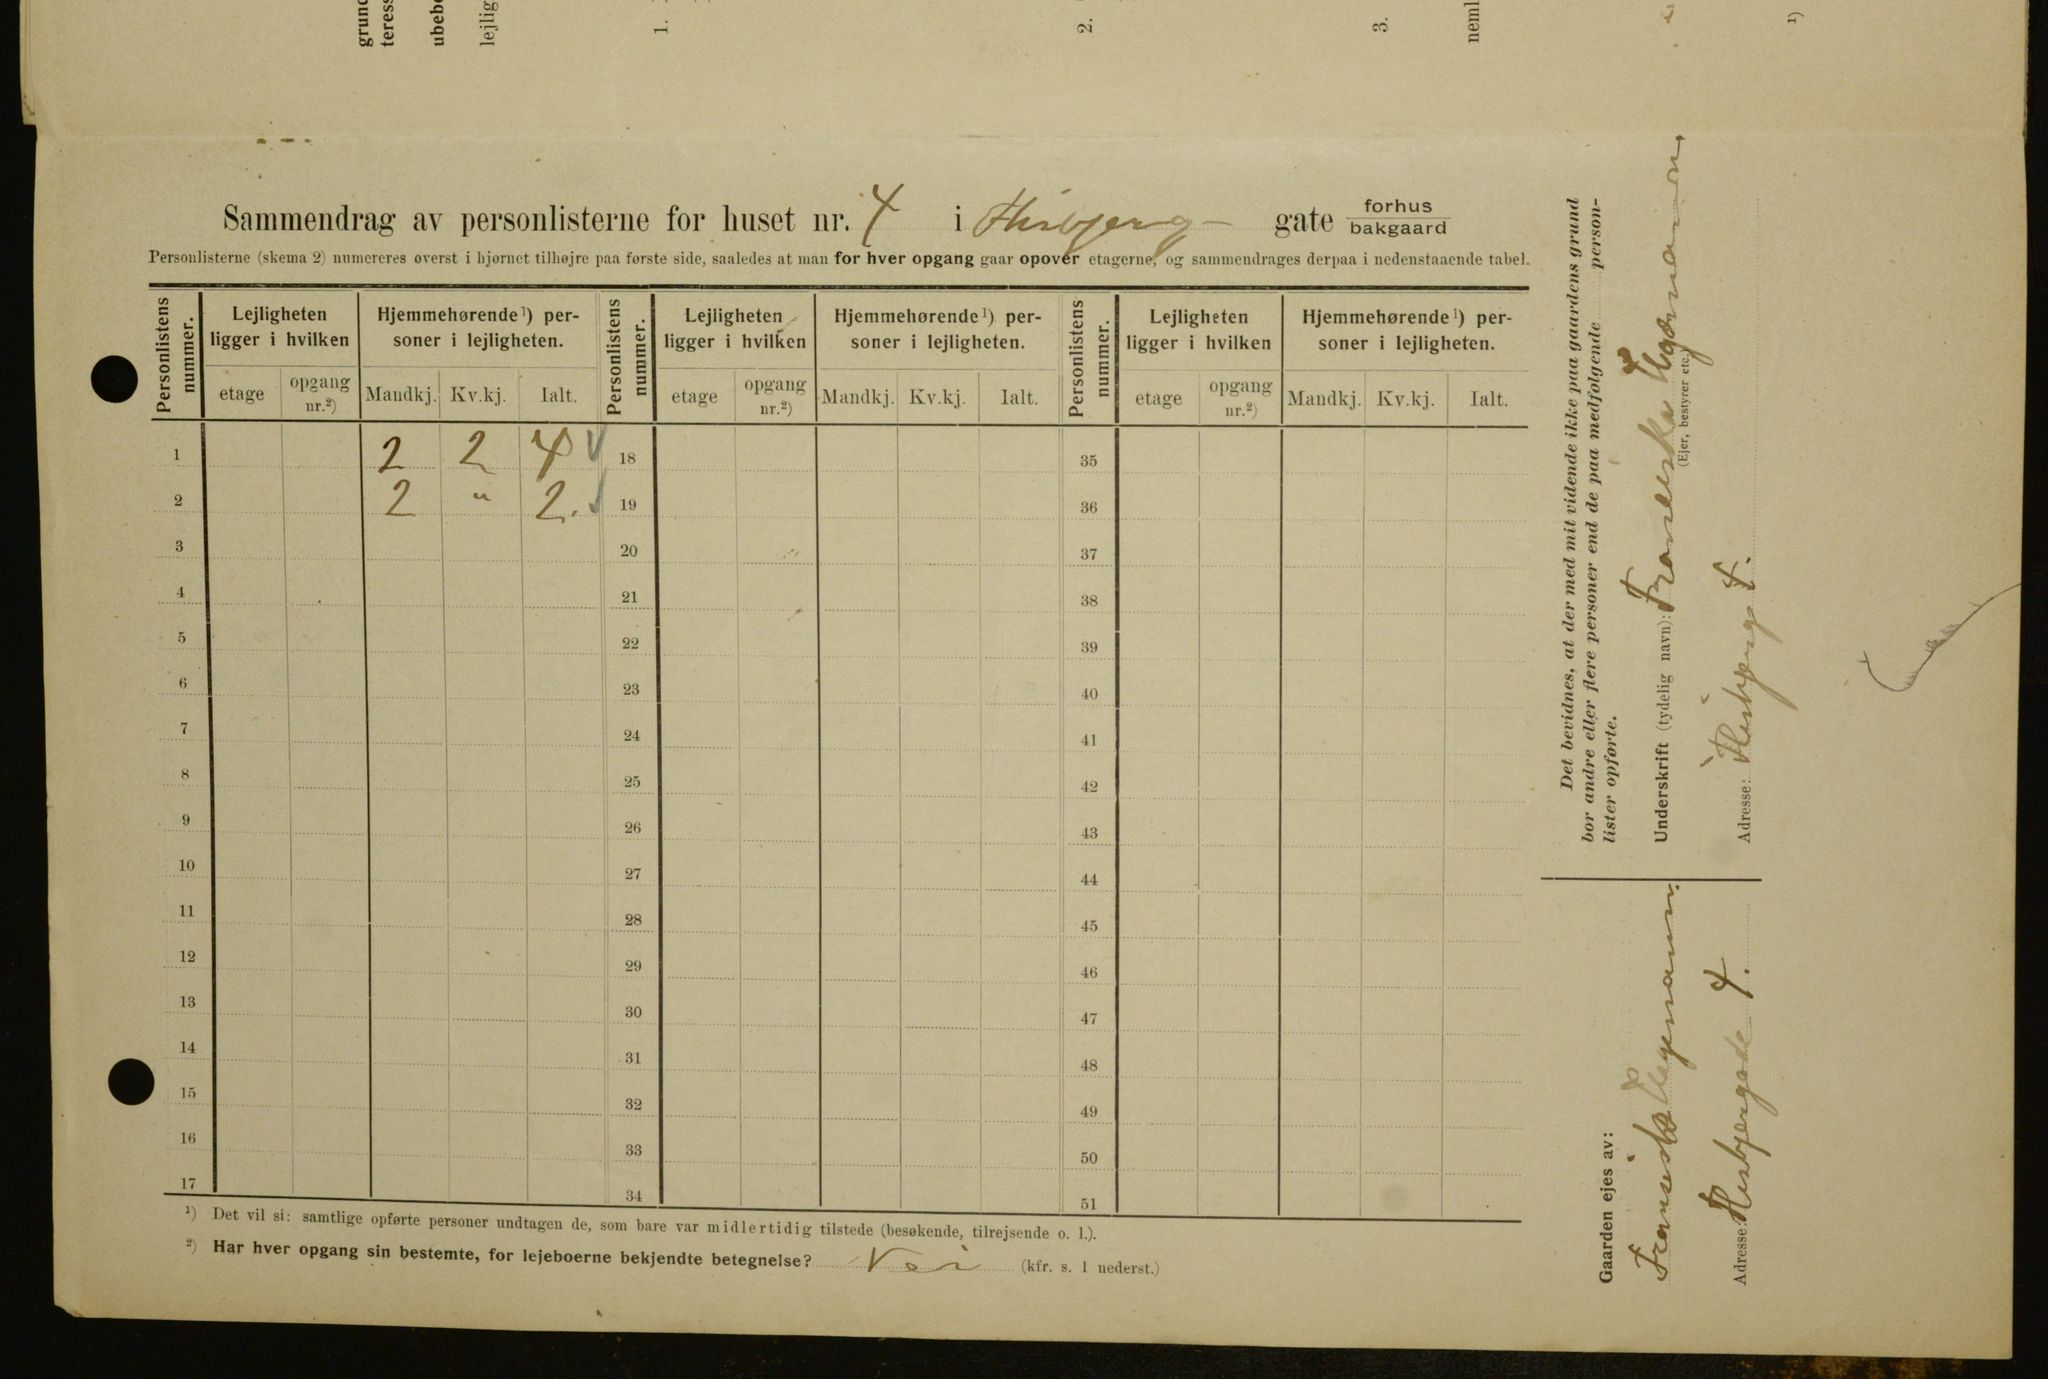 grund
teress
ubebo
lejlig
1.
2.
3.
neml
1)
Sammendrag av personlisterne for huset nr. 4 i Hisbjerg gate forhus
bakgaard
Personlisterne (skema 2) numereres øverst i hjørnet tilhøjre paa første side, saaledes at man for hver opgang gaar opover etagerne, og sammendrages derpaa i nedenstaaende tabel.
Personlistens nummer. Lejligheten ligger i hvilken Hjemmehørende 1) personer i lejligheten. Personlistens nummer. Lejligheten ligger i hvilken Hjemmehørende 1) personer i lejligheten. Personlistens nummer. Lejligheten ligger i hvilken Hjemmehørende 1) personer i lejligheten.
etage opgang nr.2) Mandkj. Kv.kj. Ialt. etage opgang nr.2) Mandkj. Kv.kj. Ialt. etage opgang nr.2) Mandkj. Kv.kj. Ialt.
1 2 2 4 18 35
2 2 " 2. 19 36
3 20 37
4 21 38
5 22 39
6 23 40
7 24 41
8 25 42
9 26 43
10 27 44
11 28 45
12 29 46
13 30 47
14 31 48
15 32 49
16 33 50
17 34 51
1) Det vil si: samtlige opførte personer undtagen de, som bare var midlertidig tilstede (besøkende, tilrejsende o. l.).
2) Har hver opgang sin bestemte, for lejeboerne bekjendte betegnelse? Nei (kfr. s. 1 nederst.)
Det bevidnes, at der med mit vidende ikke paa gaardens grund
bor andre eller flere personer end de paa medfølgende person-
lister opførte.
Underskrift (tydelig navn): Franciska Hegemann
(Ejer, bestyrer etc.)
Adresse: Hisbjerg 4.
Gaarden ejes av:
Fransiska Hegemann.
Adresse: Hisbjerggade 4.